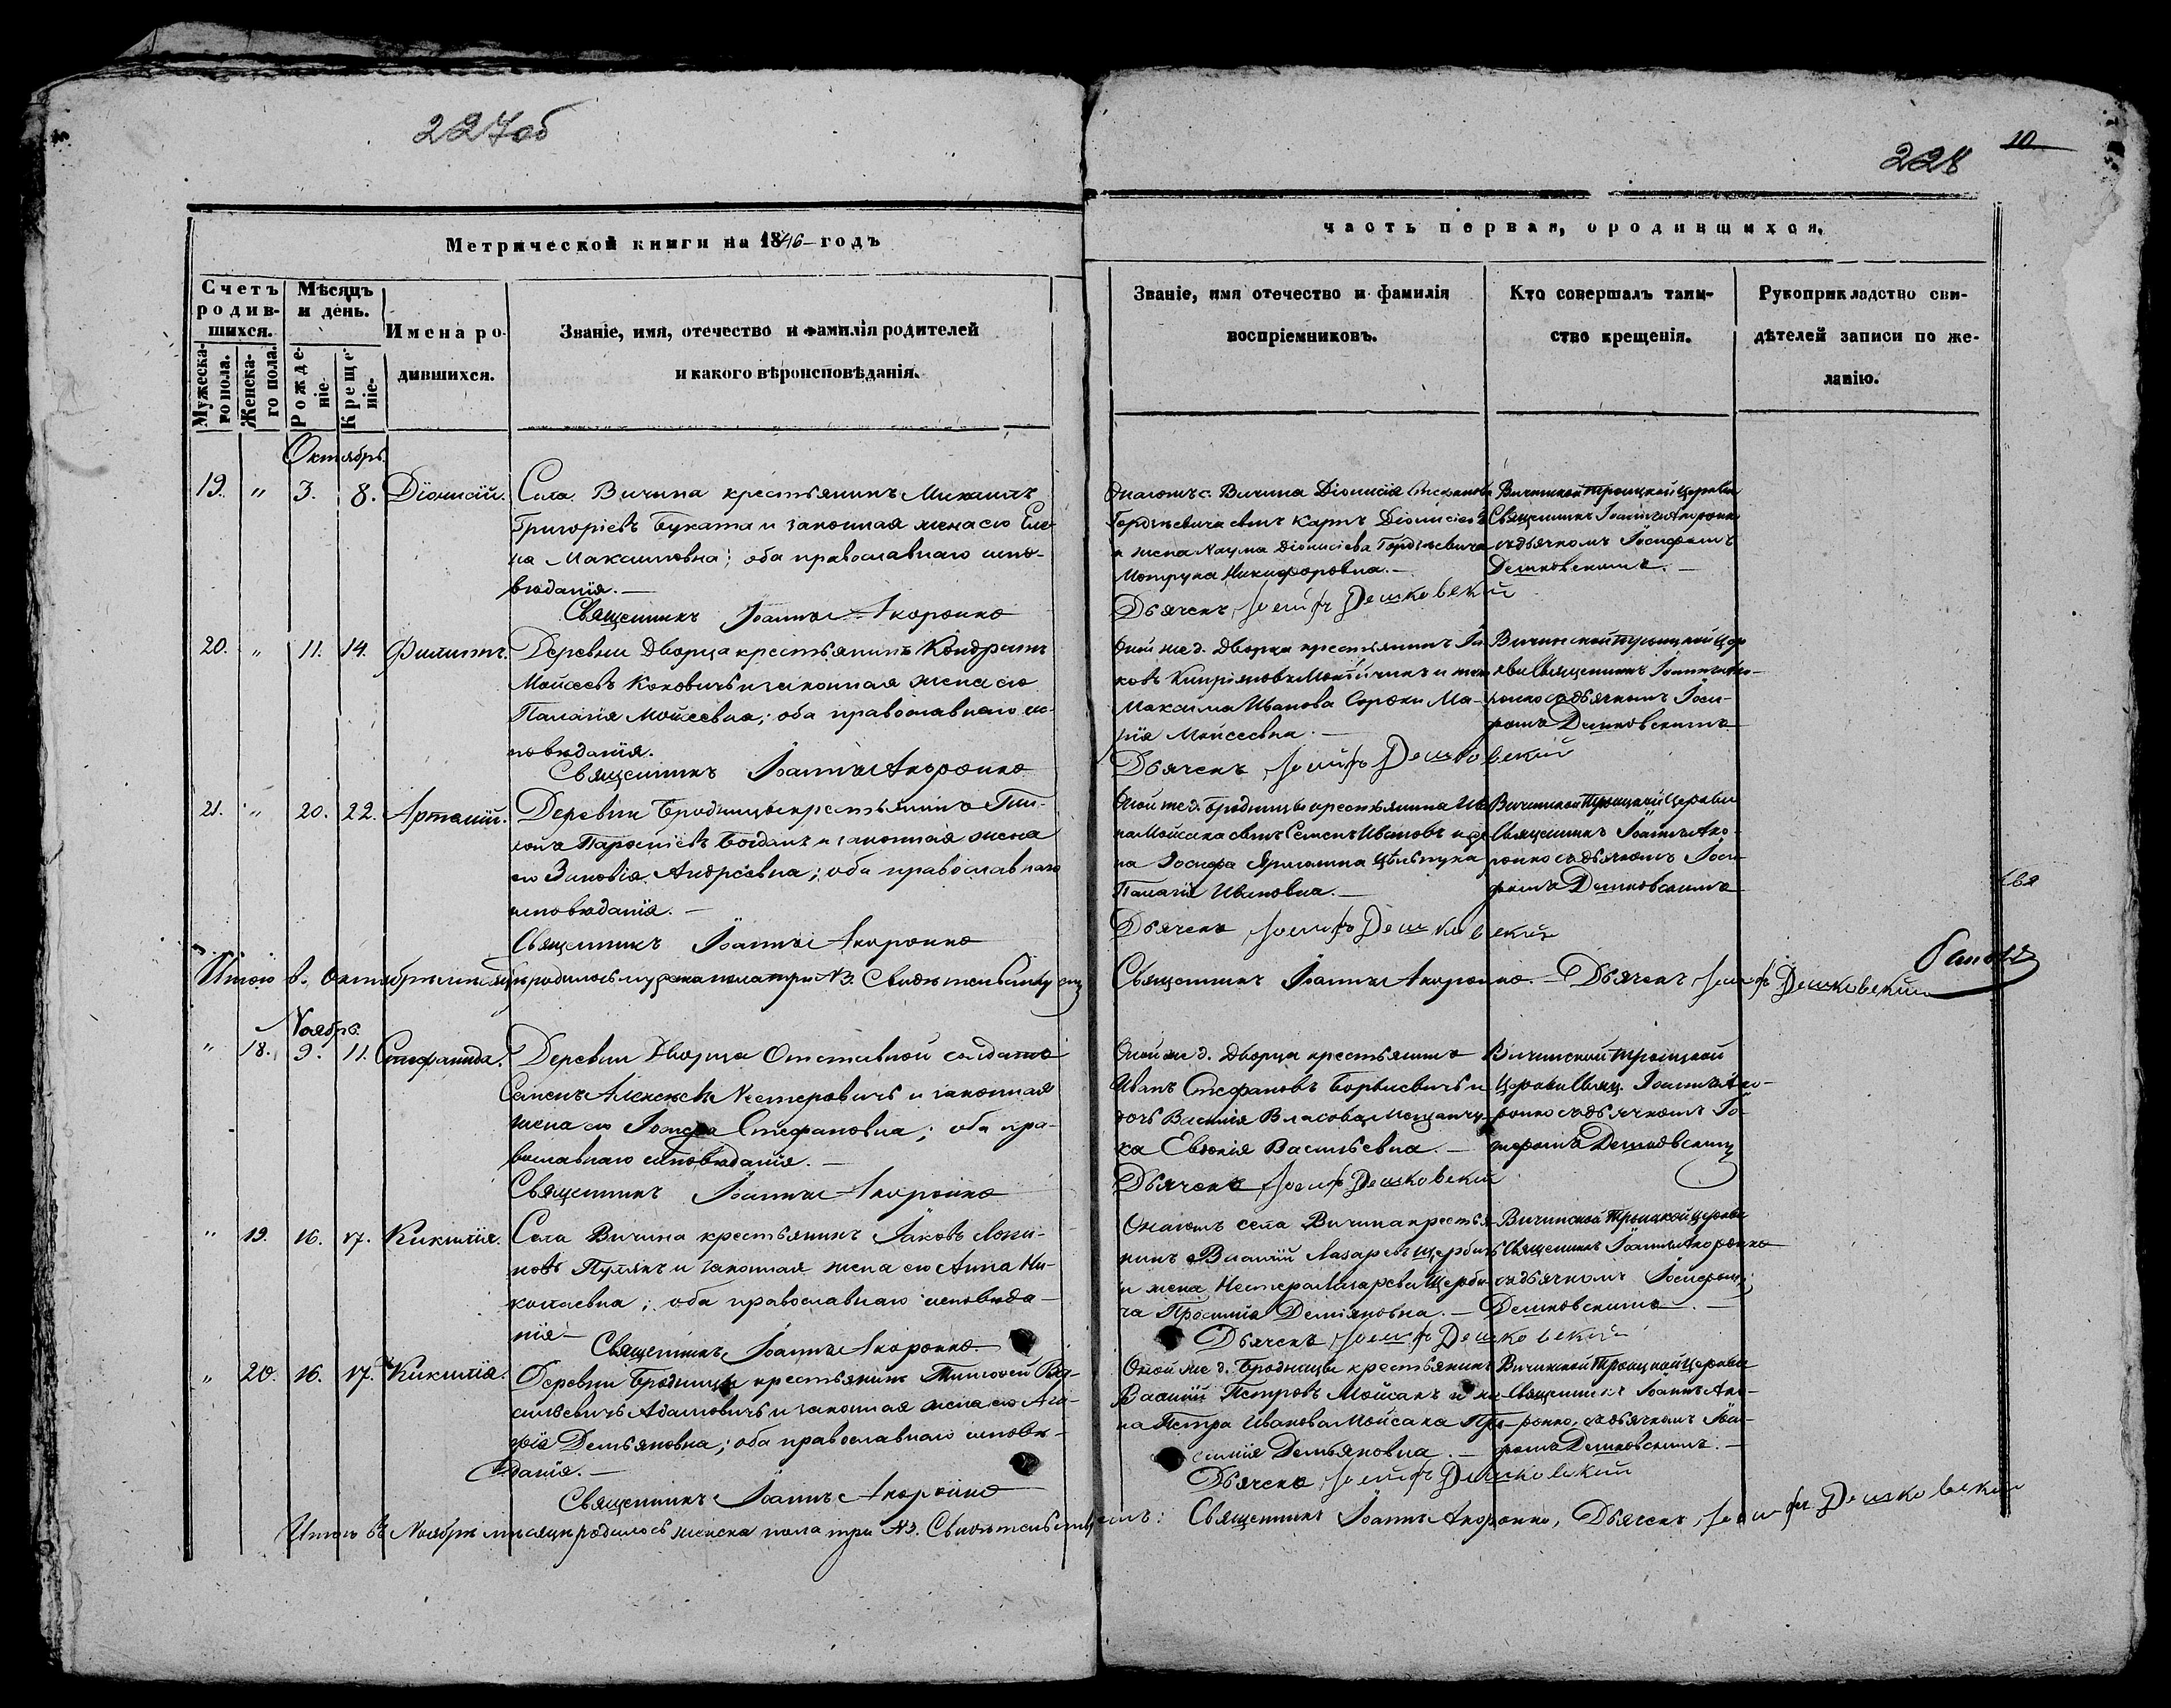 227об
228
10
Метрической книги на 1846 годъ
часть первая, о родившихся.
Счетъ родившихся.
Мѣсяцъ и день.
Имена родившихся.
Званіе, имя, отечество и фамилія родителей
и какого вѣроисповѣданія.
Мужескаго пола.
Женскаго пола.
Рожденіе.
Крещеніе.
Званіе, имя отечество и фамилія
воспріемниковъ.
Кто совершалъ таин-
ство крещенія.
Рукоприкладство сви-
дѣтелей записи по же-
ланію.
Октябрь.
19. " 3. 8. Діонисій.
Села Вичина крестьянинъ Михаилъ
Григоріевъ Буката и законная жена его Еле-
на Максимовна; оба православнаго испо-
вѣданія. —
Священникъ Іоаннъ Акоронко
Вичинской Троицкой Церкви
Священникъ Іоаннъ Акоронко
съ дьячкомъ Іосифомъ
Дешковскимъ. —
и жена Наума Діонисіева Гордѣевича
Мотруна Никифоровна. —
Дьячекъ Іосифъ Дешковскій
20. " 11. 14. Филиппъ.
Деревни Дворца крестьянинъ Кондратъ
Моисеевъ Коковичъ и законная жена его
Палагія Моисеевна; оба православнаго ис-
повѣданія.
Священникъ Іоаннъ Акоронко
Оной же д. Дворца крестьянинъ Іа-
ковъ Кипріяновъ и жена
Максима Иванова Сороки Ма-
рія Моисеевна. —
Дьячекъ Іосифъ Дешковскій
Вичинской Троицкой Цер-
кви Священникъ Іоаннъ Ако-
ронко съ дьячкомъ Іоси-
фомъ Дешковскимъ
21. " 20. 22. Артемій.
Деревни Бродницы крестьянинъ
Богданъ и законная жена
его Зиновія Андреевна; оба православнаго
исповѣданія. —
Священникъ Іоаннъ Акоронко
Оной же д. Бродницы крестьянина Ива-
на Мойсака сынъ Семенъ Ивановъ и же-
на Іосифа
Палагія Ивановна. —
Дьячекъ Іосифъ Дешковскій
Вичинской Троицкой Церкви
Священникъ Іоаннъ Ако-
ронко съ дьячкомъ Іоси-
фомъ Дешковскимъ
Итого въ Октябрѣ мѣсяцѣ родилось мужеска пола три №3. Свидѣтельствуемъ
Священникъ Іоаннъ Акоронко. — Дьячекъ Іосифъ Дешковскій
Ноябрь.
" 18. 9. 11. Стефанида.
Деревни Дворца Отставной солдатъ
Семенъ Алексѣевъ Нестеровичъ и законная
жена его Стефановна; оба пра-
вославнаго исповѣданія. —
Священникъ Іоаннъ Акоронко
Оной же д. Дворца крестьянинъ
Иванъ Стефановъ и
дочь Василія Власова
Евдокія Васильевна. —
Дьячекъ Іосифъ Дешковскій
Вичинской Троицкой
Церкви Свящ. Іоаннъ Ако-
ронко съ дьячкомъ Іо-
сифомъ Дешковскимъ
" 19. 16. 17. Кикилія.
Села Вичина крестьянинъ Іаковъ Логи-
новъ и законная жена его Анна Ни-
колаевна; оба православнаго исповѣда-
нія —
Священникъ Іоаннъ Акоронко
Онаго же села Вичина крестья-
нинъ Василій Лазаревъ Щербичъ
и жена Нестера Лазарева Щерби-
ча Демяновна. —
Дьячекъ Іосифъ Дешковскій
Вичинской Троицкой Церкви
Священникъ Іоаннъ Акоронко
съ дьячкомъ Іосифомъ
Дешковскимъ. —
" 20. 16. 17. Кикилія.
Деревни Бродницы крестьянинъ Тимофей Ва-
сильевичъ Адамовичъ и законная жена его Ага-
фія Демьяновна; оба православнаго исповѣ-
данія. —
Священникъ Іоаннъ Акоронко
Оной же д. Бродницы крестьянинъ
Василій Петровъ Мойсакъ и же-
на Петра Иванова Мойсака
Демьяновна. —
Дьячекъ Іосифъ Дешковскій
Вичинской Троицкой Церкви
Священникъ Іоаннъ Ако-
ронко, съ дьячкомъ Іоси-
фомъ Дешковскимъ. —
Итого въ Ноябрѣ мѣсяцѣ родилось женска пола три №3. Свидѣтельствуемъ: Священникъ Іоаннъ Акоронко, Дьячекъ Іосифъ Дешковскій